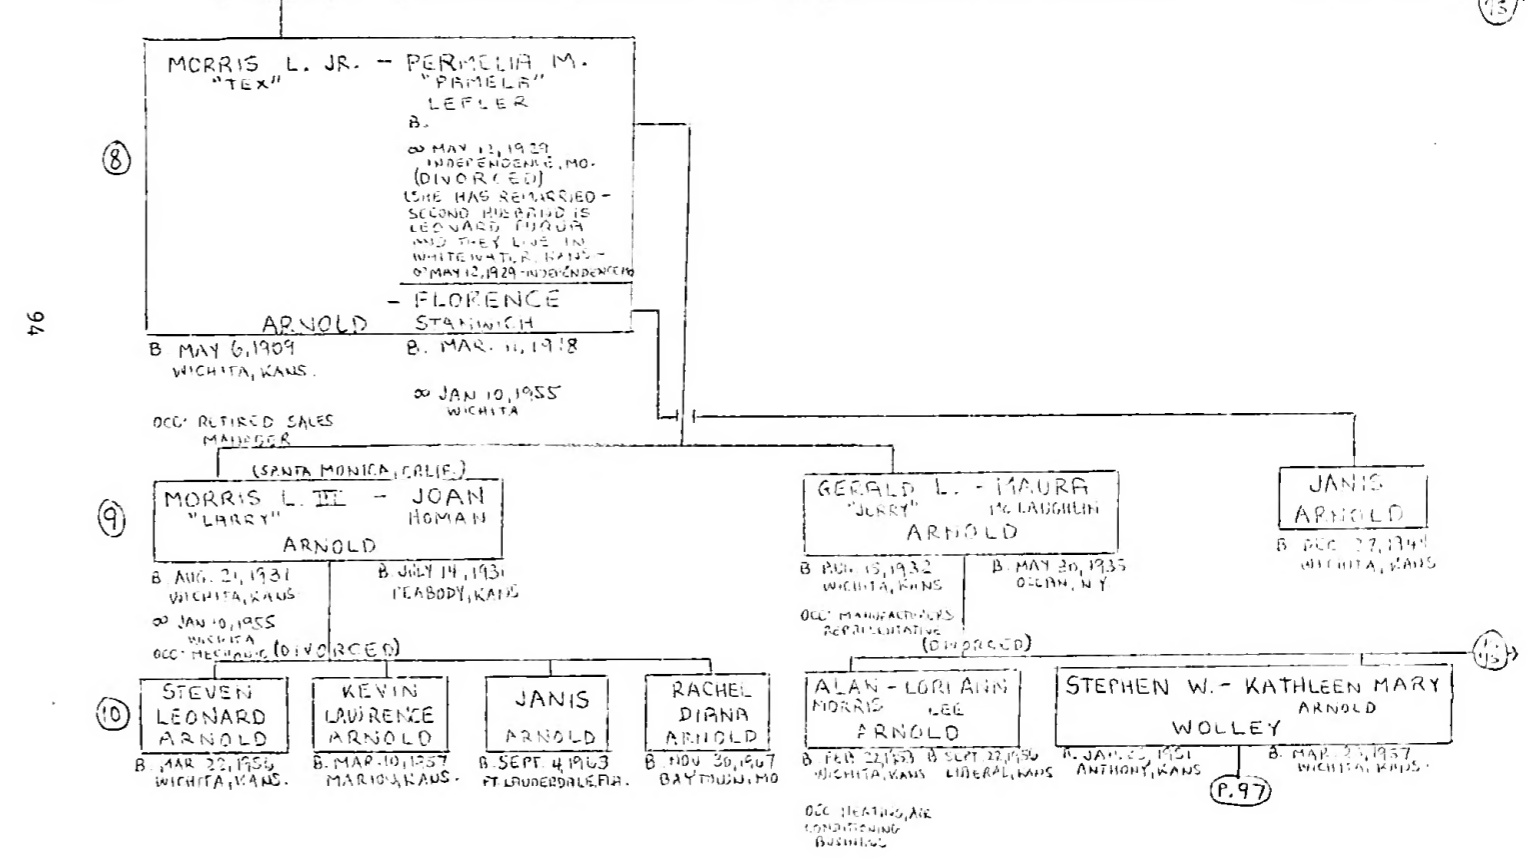 MORRIS L. JR. - PERMELIA M.
"TEX" "PAMELA"
LEFLER
B.
∞ MAY 12, 1929
INDEPENDENCE, MO.
(DIVORCED)
(SHE HAS REMARRIED -
SECOND HUSBAND IS
LEONARD FUQUA
AND THEY LIVE IN
WHITEWATER, KANS -
∞ MAY 12, 1929 - INDEPENDENCE MO
- FLORENCE
ARNOLD STANWICH
8
94
B MAY 6, 1909 B. MAR. 11, 1918
WICHITA, KANS.
∞ JAN 10, 1955
WICHITA
OCC: RETIRED SALES
MANAGER
(SANTA MONICA, CALIF.)
9
MORRIS L. III - JOAN
"LARRY" HOMAN
ARNOLD
B. AUG. 21, 1931 B. JULY 14, 1931
WICHITA, KANS. PEABODY, KANS
∞ JAN 10, 1955
WICHITA
OCC: MECHANIC (DIVORCED)
GERALD L. - MAURA
"JERRY" McLAUGHLIN
ARNOLD
B AUG 15, 1932 B. MAY 30, 1935
WICHITA, KANS OLEAN, N.Y.
OCC: MANUFACTURERS
REPRESENTATIVE
(DIVORCED)
JANIS
ARNOLD
B DEC 27,
WICHITA, KANS
10
STEVEN
LEONARD
ARNOLD
B. MAR 22, 1956
WICHITA, KANS.
KEVIN
LAWRENCE
ARNOLD
B. MAR. 10, 1957
MARION, KANS.
JANIS
ARNOLD
B. SEPT. 4, 1963
FT. LAUDERDALE, FLA.
RACHEL
DIANA
ARNOLD
B. NOV 30, 1967
MO
ALAN - LORI ANN
MORRIS LEE
ARNOLD
B FEB 22, 1953 B SEPT. 22, 1956
WICHITA, KANS LIBERAL, KANS
OCC HEATING, AIR
CONDITIONING
BUSINESS
STEPHEN W. - KATHLEEN MARY
ARNOLD
WOLLEY
B. JAN. 1951 B. MAR. 23, 1957
ANTHONY, KANS WICHITA, KANS.
P. 97